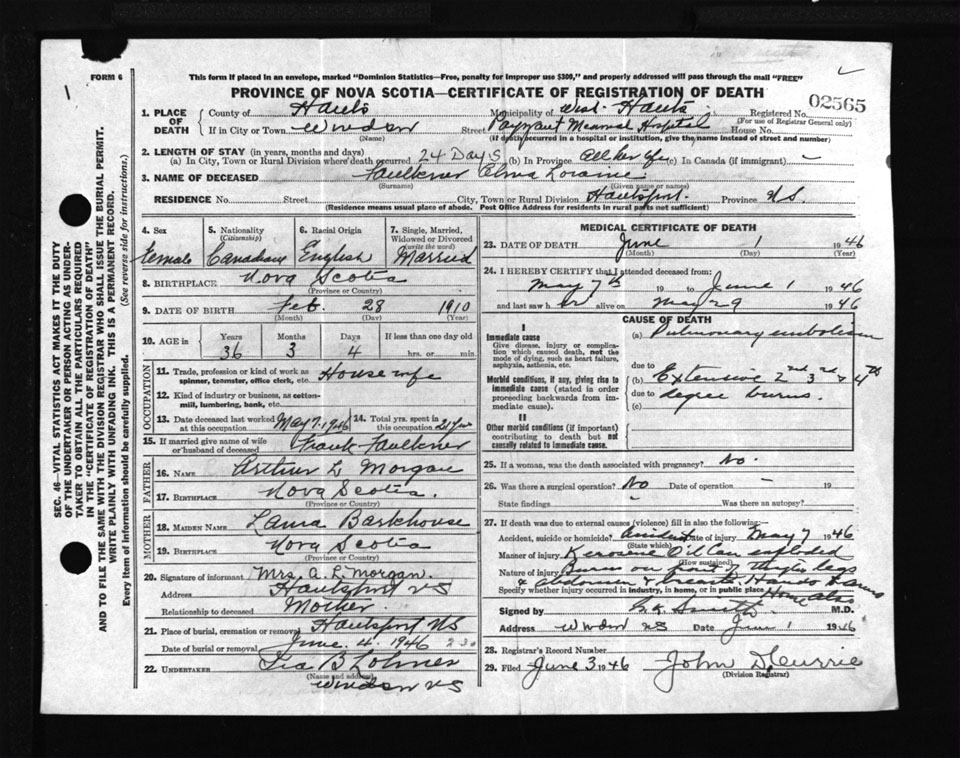 FORM 6
This form if placed in an envelope, marked "Dominion Statistics—Free, penalty for improper use $300," and properly addressed will pass through the mail "FREE"
PROVINCE OF NOVA SCOTIA—CERTIFICATE OF REGISTRATION OF DEATH
02565
1. PLACE OF DEATH County of Hants Municipality of West Hants Registered No.
(For use of Registrar General only)
If in City or Town Windsor Street Payzant Memorial Hospital House No.
(Name) (If death occurred in a hospital or institution, give its name instead of street and number)
2. LENGTH OF STAY (in years, months and days)
(a) In City, Town or Rural Division where death occurred 24 Days (b) In Province all her life (c) In Canada (if immigrant) –
3. NAME OF DECEASED Faulkner Alma Loraine
(Surname) (Given name or names)
RESIDENCE No. Street City, Town or Rural Division Hantsport. Province N.S.
(Residence means usual place of abode. Post Office Address for residents in rural parts not sufficient)
4. Sex 5. Nationality (Citizenship) 6. Racial Origin 7. Single, Married, Widowed or Divorced (write the word)
Female Canadian English Married
8. BIRTHPLACE Nova Scotia
(Province or Country)
9. DATE OF BIRTH Feb. 28 1910
(Month) (Day) (Year)
10. AGE in Years Months Days If less than one day old
36 3 4 hrs. or min.
OCCUPATION
11. Trade, profession or kind of work as spinner, teamster, office clerk, etc. Housewife
12. Kind of industry or business, as cotton-mill, lumbering, bank, etc.
13. Date deceased last worked at this occupation May 7, 1946 14. Total yrs. spent in this occupation
15. If married give name of wife or husband of deceased Frank Faulkner
FATHER
16. NAME Arthur L Morgan
17. BIRTHPLACE Nova Scotia.
(Province or Country)
MOTHER
18. MAIDEN NAME Laura Barkhouse
19. BIRTHPLACE Nova Scotia
(Province or Country)
20. Signature of informant Mrs. A. L. Morgan.
Address Hantsport NS
Relationship to deceased Mother.
21. Place of burial, cremation or removal Hantsport NS
Date of burial or removal June. 4. 1946 2 30
22. UNDERTAKER
(Name and address)
Windsor NS
MEDICAL CERTIFICATE OF DEATH
23. DATE OF DEATH June 1 1946
(Month) (Day) (Year)
24. I HEREBY CERTIFY that I attended deceased from:
May 7th 19 to June 1 1946
and last saw her alive on May 29 1946
CAUSE OF DEATH
I
Immediate cause
Give disease, injury or complication which caused death, not the mode of dying, such as heart failure, asphyxia, asthenia, etc.
(a) Pulmonary embolism
due to
Morbid conditions, if any, giving rise to immediate cause (stated in order proceeding backwards from immediate cause).
(b) Extensive 2nd 3rd & 4th
due to degree burns.
(c)
II
Other morbid conditions (if important) contributing to death but not causally related to immediate cause.
25. If a woman, was the death associated with pregnancy? No.
26. Was there a surgical operation? No Date of operation – 19
State findings – Was there an autopsy?
27. If death was due to external causes (violence) fill in also the following:—
Accident, suicide or homicide? accident Date of injury May 7 1946
(State which)
Manner of injury Kerosene Oil Can exploded
(How sustained)
Nature of injury Burns on front of thighs legs
& abdomen & breasts. Hands & arms
Specify whether injury occurred in industry, in home, or in public place Home
Signed by Smith M.D.
Address Windsor NS Date June 1 1946
28. Registrar's Record Number
29. Filed June 3 1946 John D. Currie
(Division Registrar)
SEC. 46—VITAL STATISTICS ACT MAKES IT THE DUTY
OF THE UNDERTAKER OR PERSON ACTING AS UNDER-
TAKER TO OBTAIN ALL THE PARTICULARS REQUIRED
IN THE "CERTIFICATE OF REGISTRATION OF DEATH"
AND TO FILE THE SAME WITH THE DIVISION REGISTRAR WHO SHALL ISSUE THE BURIAL PERMIT.
WRITE PLAINLY WITH UNFADING INK. THIS IS A PERMANENT RECORD.
Every item of information should be carefully supplied. (See reverse side for instructions.)